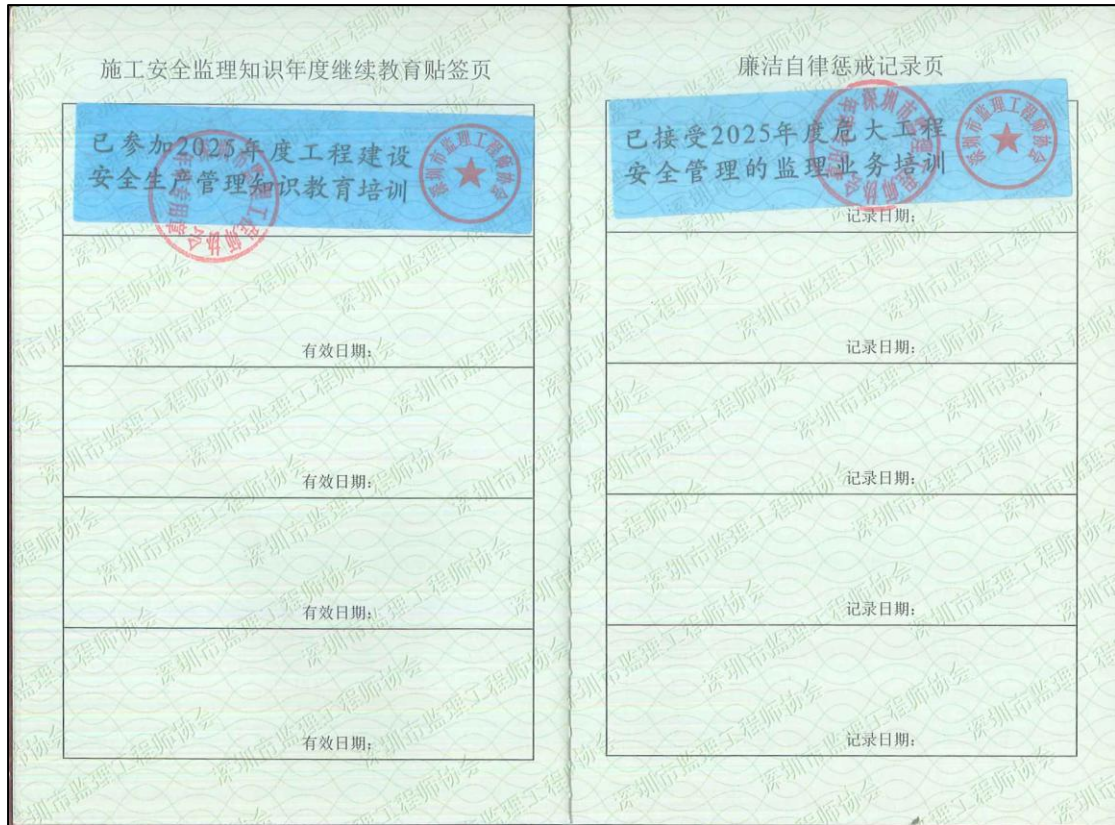 施工安全监理知识年度继续教育贴签页
已参加2025年度工程建设
安全生产管理知识教育培训
深圳市监理工程师协会
有效日期：
有效日期：
有效日期：
有效日期：
廉洁自律惩戒记录页
已接受2025年度危大工程
安全管理的监理业务培训
深圳市监理工程师协会
记录日期：
记录日期：
记录日期：
记录日期：
记录日期：